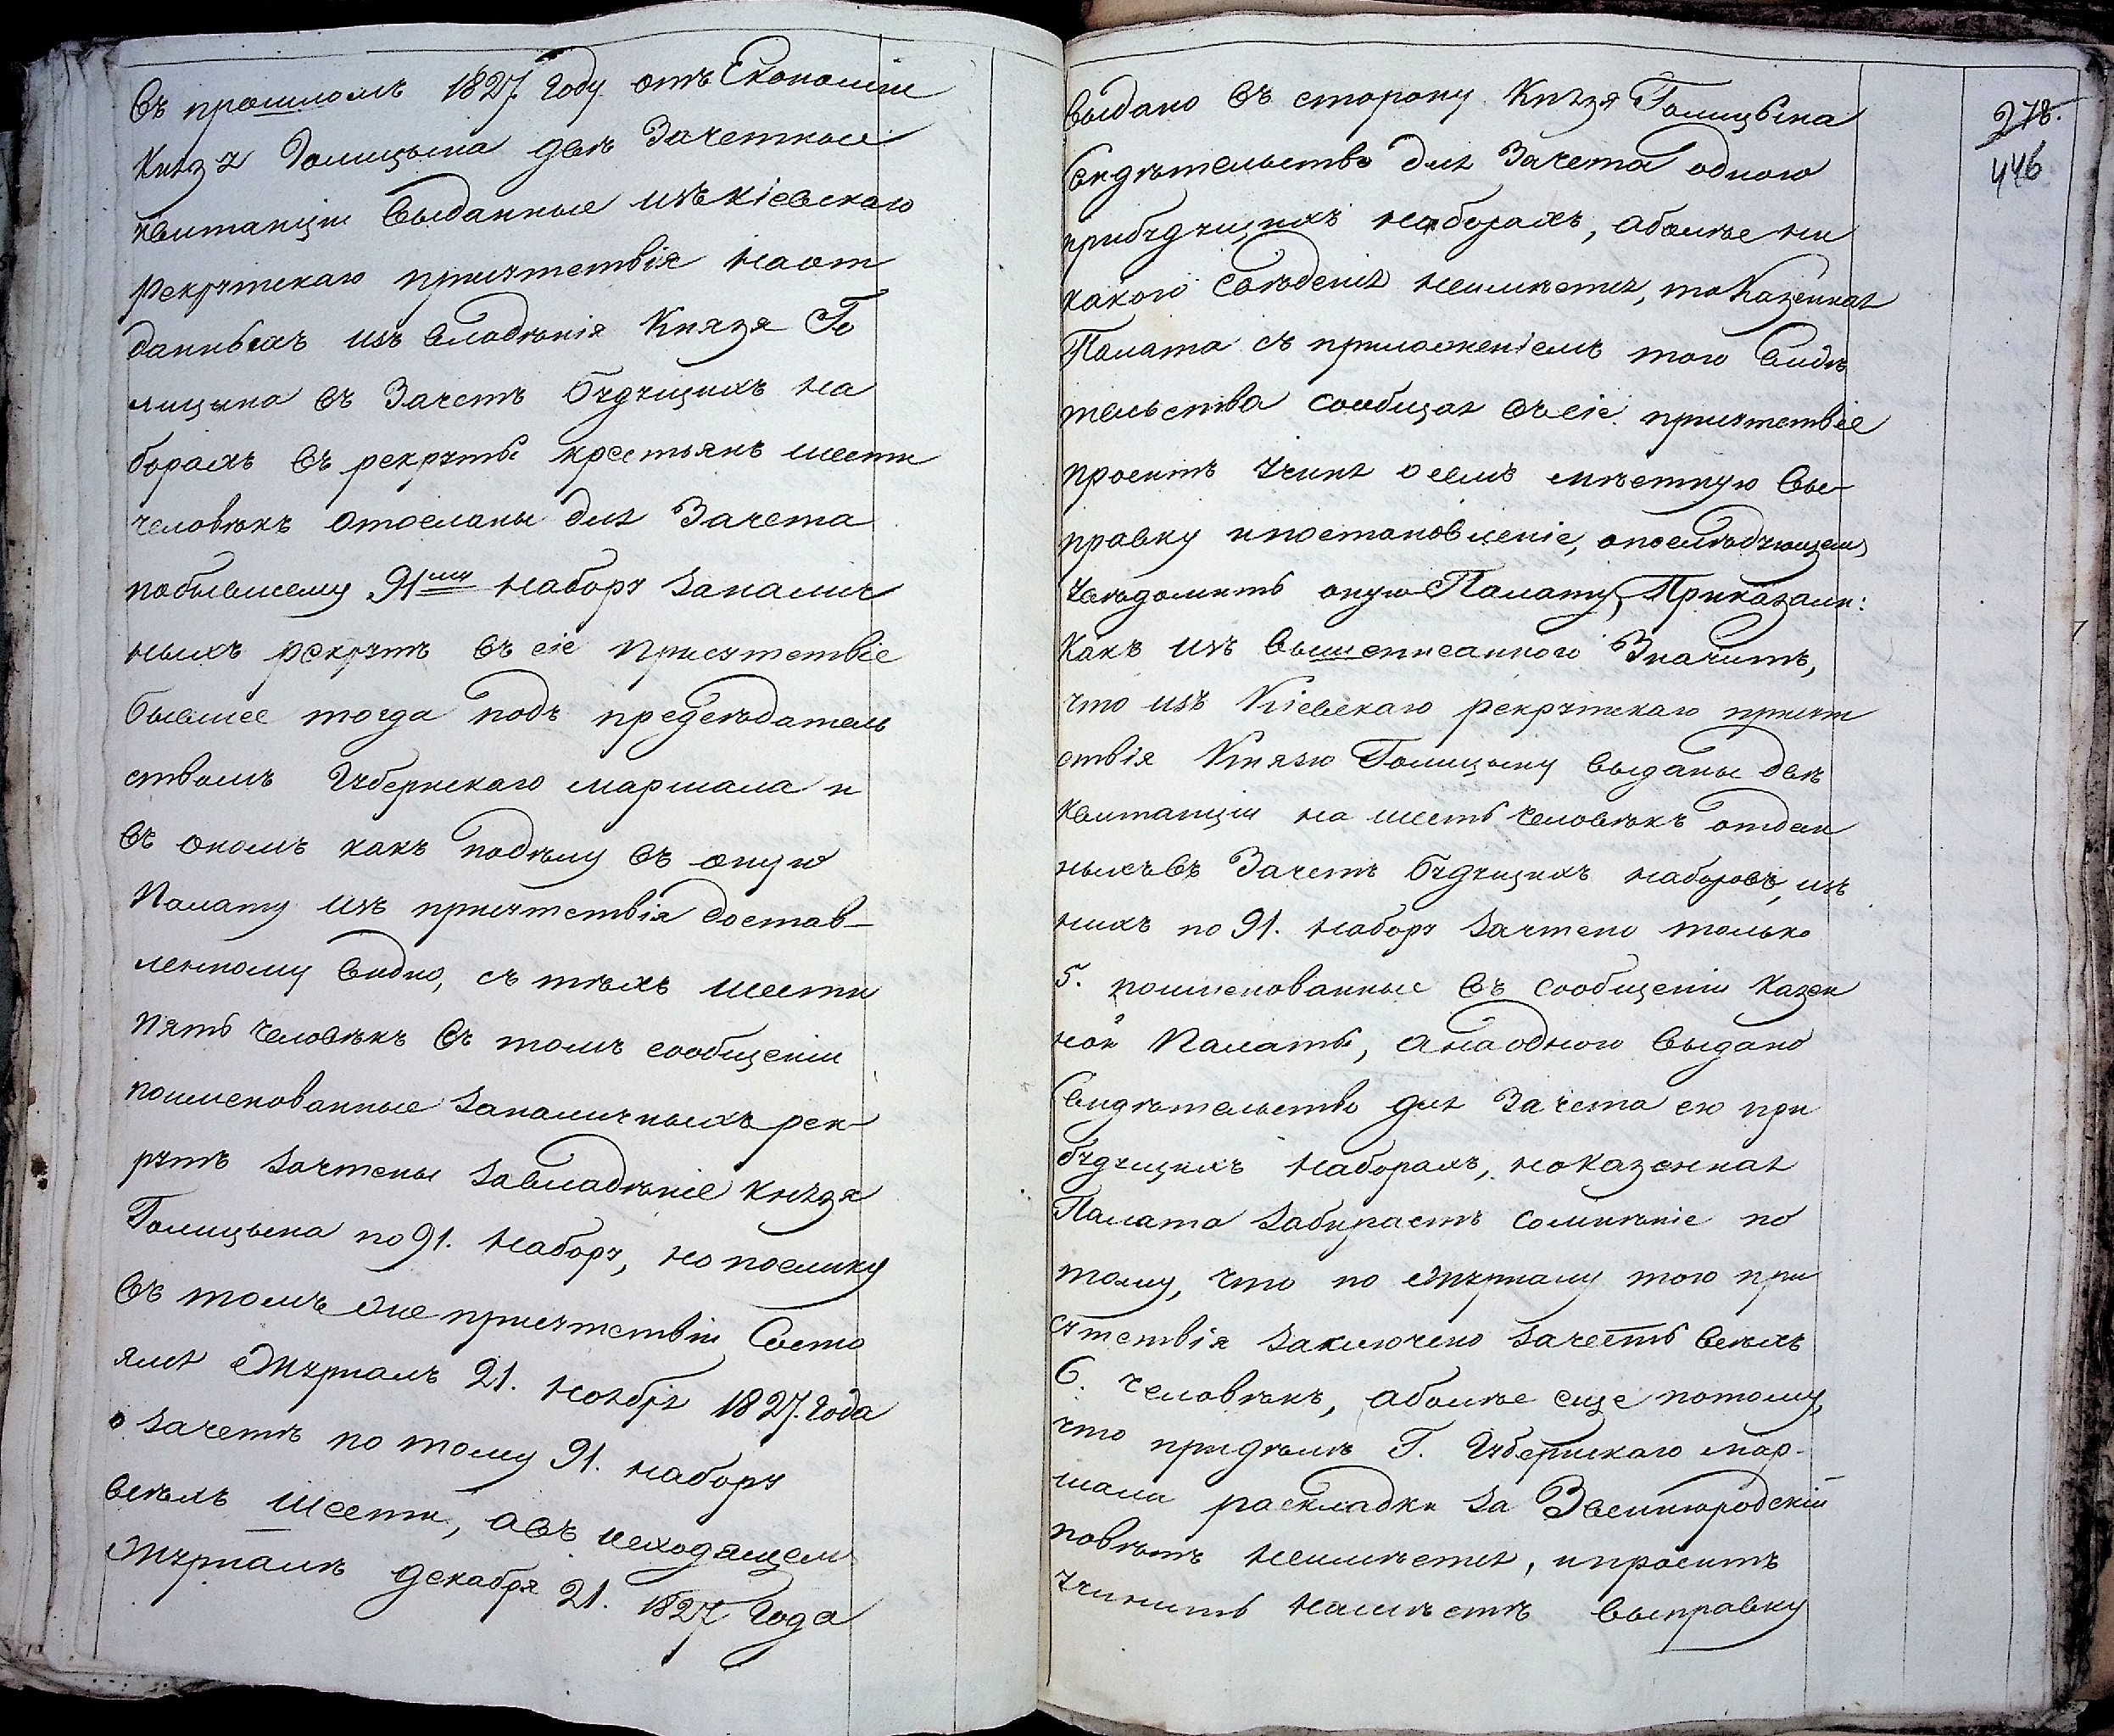 въ прошломъ 1827. году отъ Економіи
Князя Голицына двѣ Зачетные
квитанціи выданные изъ Кіевскаго
рекрутскаго присутствія на от
данныхъ изъ владѣнія Князя Го
лицына въ Зачетъ будущихъ на
борахъ въ рекруты крестьянъ шести
человѣкъ отосланы для Зачета
по бывшему 91му набору за налич
ныхъ рекрутъ въ сіе присутствіе
бывшее тогда подъ предсѣдатель
ствомъ Губернскаго маршала и
въ ономъ какъ по дѣлу въ оную
Палату изъ присутствія достав-
ленному видно, съ тѣхъ шести
пять человѣкъ въ томъ сообщеніи
поименованные за наличныхъ рек-
рутъ зачтены за владѣніе Князя
Голицына по 91. набору, но поелику
въ томъ же присутствіи Состо
ялся Журналъ 21. ноября 1827. года
о зачетѣ по тому 91. набору
всѣхъ шести, а въ исходящем
Журналѣ декабря 21. 1827 года
278.
446
выдано въ сторону Князя Голицына
Свидѣтельство для Зачета одного
при будущихъ наборахъ, а болѣе ни
какого свѣденія неимѣется, то Казенная
Палата съ приложеніемъ того Свидѣ
тельства сообщая въ сіе присутствіе
проситъ учиня о семъ мѣстную вы-
правку и постановленіе, о послѣдующем
увѣдомить оную Палату, Приказали:
Какъ изъ вышеписанного Значитъ,
что изъ Кіевскаго рекрутскаго присут
ствія Князю Голицыну выданы двѣ
квитанціи на шесть человѣкъ отдан
ныхъ въ Зачетъ будущихъ наборовъ, изъ
нихъ по 91. набору зачтено только
5. поименованные въ сообщеніи Казен
ной Палаты, а на одного выдано
Свидѣтельство для Зачета его при
будущихъ наборахъ, но Казенная
Палата забираетъ сомнѣніе по
тому, что по Журналу того при
сутствія заключено зачесть всѣхъ
6. человѣкъ, а болѣе еще потому,
что при дѣлѣ Г. Губернскаго мар-
шала раскладки за Звенигородскій
повѣтъ неимѣется, и проситъ
учинить на мѣстѣ выправку